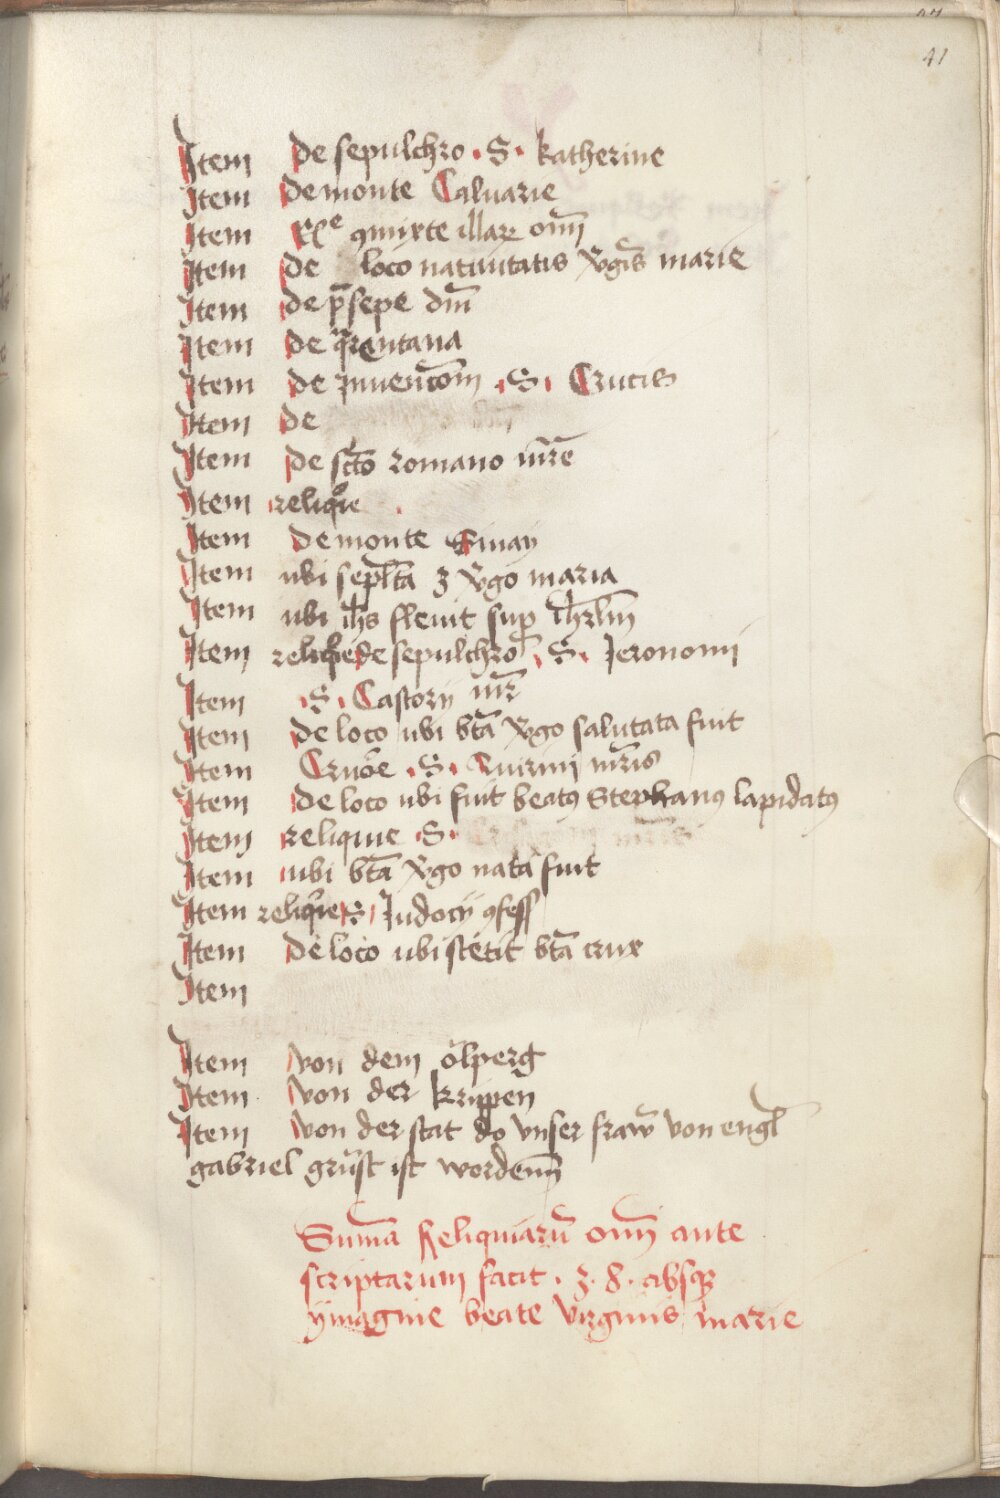 41
Item de sepulchro · S · katherine
Item de monte Caluarie
Item Rl̅e ꝯmixte illaꝝ om̅
Item de loco natiuitatis v̾gis̅ marie
Item de p̅sepe dn̅i
Item de q̾rentana
Item de Inuenc̅om · S · Crucis
Item de
Item de sct̅o romano mr̅e
Item reliquie
Item de monte Sinay
Item ubi sepl̅ta ʒ v̾go maria
Item ubi ih̅s fleuit sup̱ ih̅rlm̅
Item reliquie de sepulchro · S · Jeronomi
Item · S · Castorij mr̅
Item de loco ubi bt̅a v̾go salutata fuit
Item · S · Quirini mr̅is
Item de loco ubi fuit beatꝯ Stephanꝯ lapidatꝯ
Item reliquie · S ·
Item ubi bt̅a v̾go nata fuit
Item reliquie S Judocij ꝯfess
Item de loco ubi stetit bt̅a crux
Item
Item von dem ölperg
Item von der krippen
Item von der stat do vnser fraw̅ von engl̅
gabriel grůst ist wordenn̅
Sum̅a Reliquiarū om̅ ante
scriptarum facit · 3 · 8 · absqꝫ
ymagine beate virginis marie